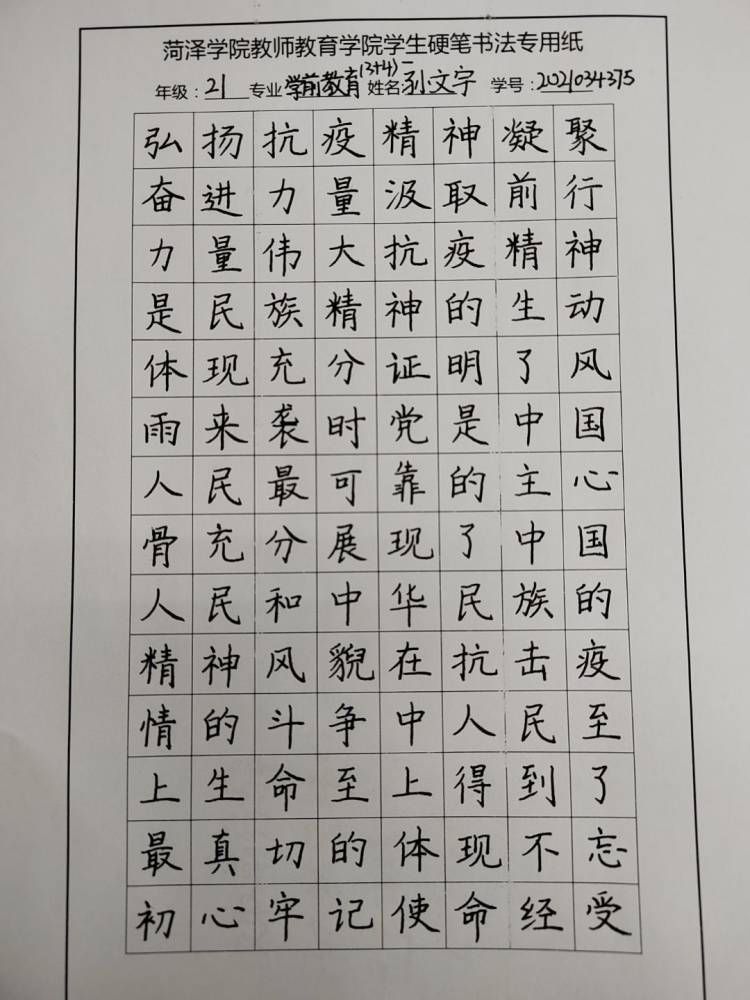 菏泽学院教师教育学院学生硬笔书法专用纸
年级：21 专业学前教育(3+4)一 姓名：孙文宇 学号：2021034375
弘扬抗疫精神凝聚
奋进力量汲取前行
力量伟大抗疫精神
是民族精神的生动
体现充分证明了风
雨来袭时党是中国
人民最可靠的主心
骨充分展现了中国
人民和中华民族的
精神风貌在抗击疫
情的斗争中人民至
上生命至上得到了
最真切的体现不忘
初心牢记使命经受